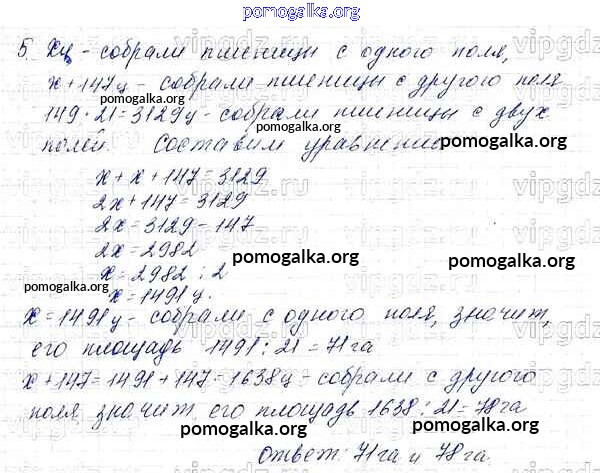 pomogalka.org
5. Xц - собрали пшеницы с одного поля,
x + 147ц - собрали пшеницы с другого поля
pomogalka.org
149 · 21 = 3129ц - собрали пшеницы с двух
pomogalka.org
полей. Составим уравнение
pomogalka.org
x + x + 147 = 3129
2x + 147 = 3129
2x = 3129 - 147
2x = 2982
x = 2982 : 2
pomogalka.org pomogalka.org
pomogalka.org
x = 1491 ц.
x = 1491ц - собрали с одного поля, значит,
его площадь 1491 : 21 = 71 га
x + 147 = 1491 + 147 = 1638ц - собрали с другого
поля, значит, его площадь 1638 : 21 = 78 га
pomogalka.org pomogalka.org
Ответ: 71 га и 78 га.
pomogalka.org